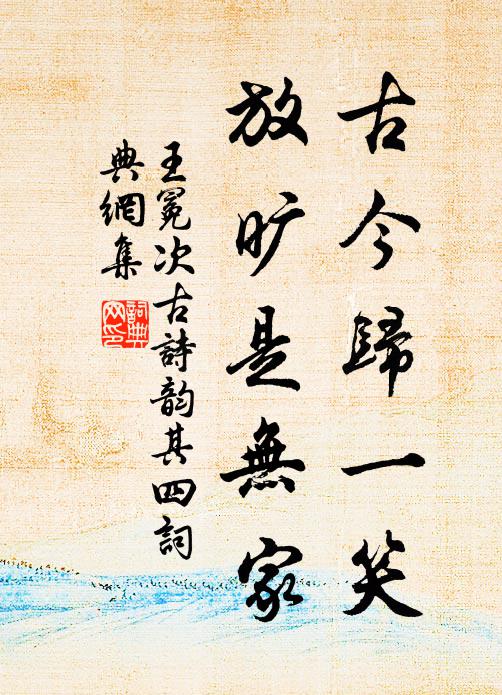 古今歸一笑
放旷是無家
王冕次古詩韵其四詞
典網集
詞典
网印